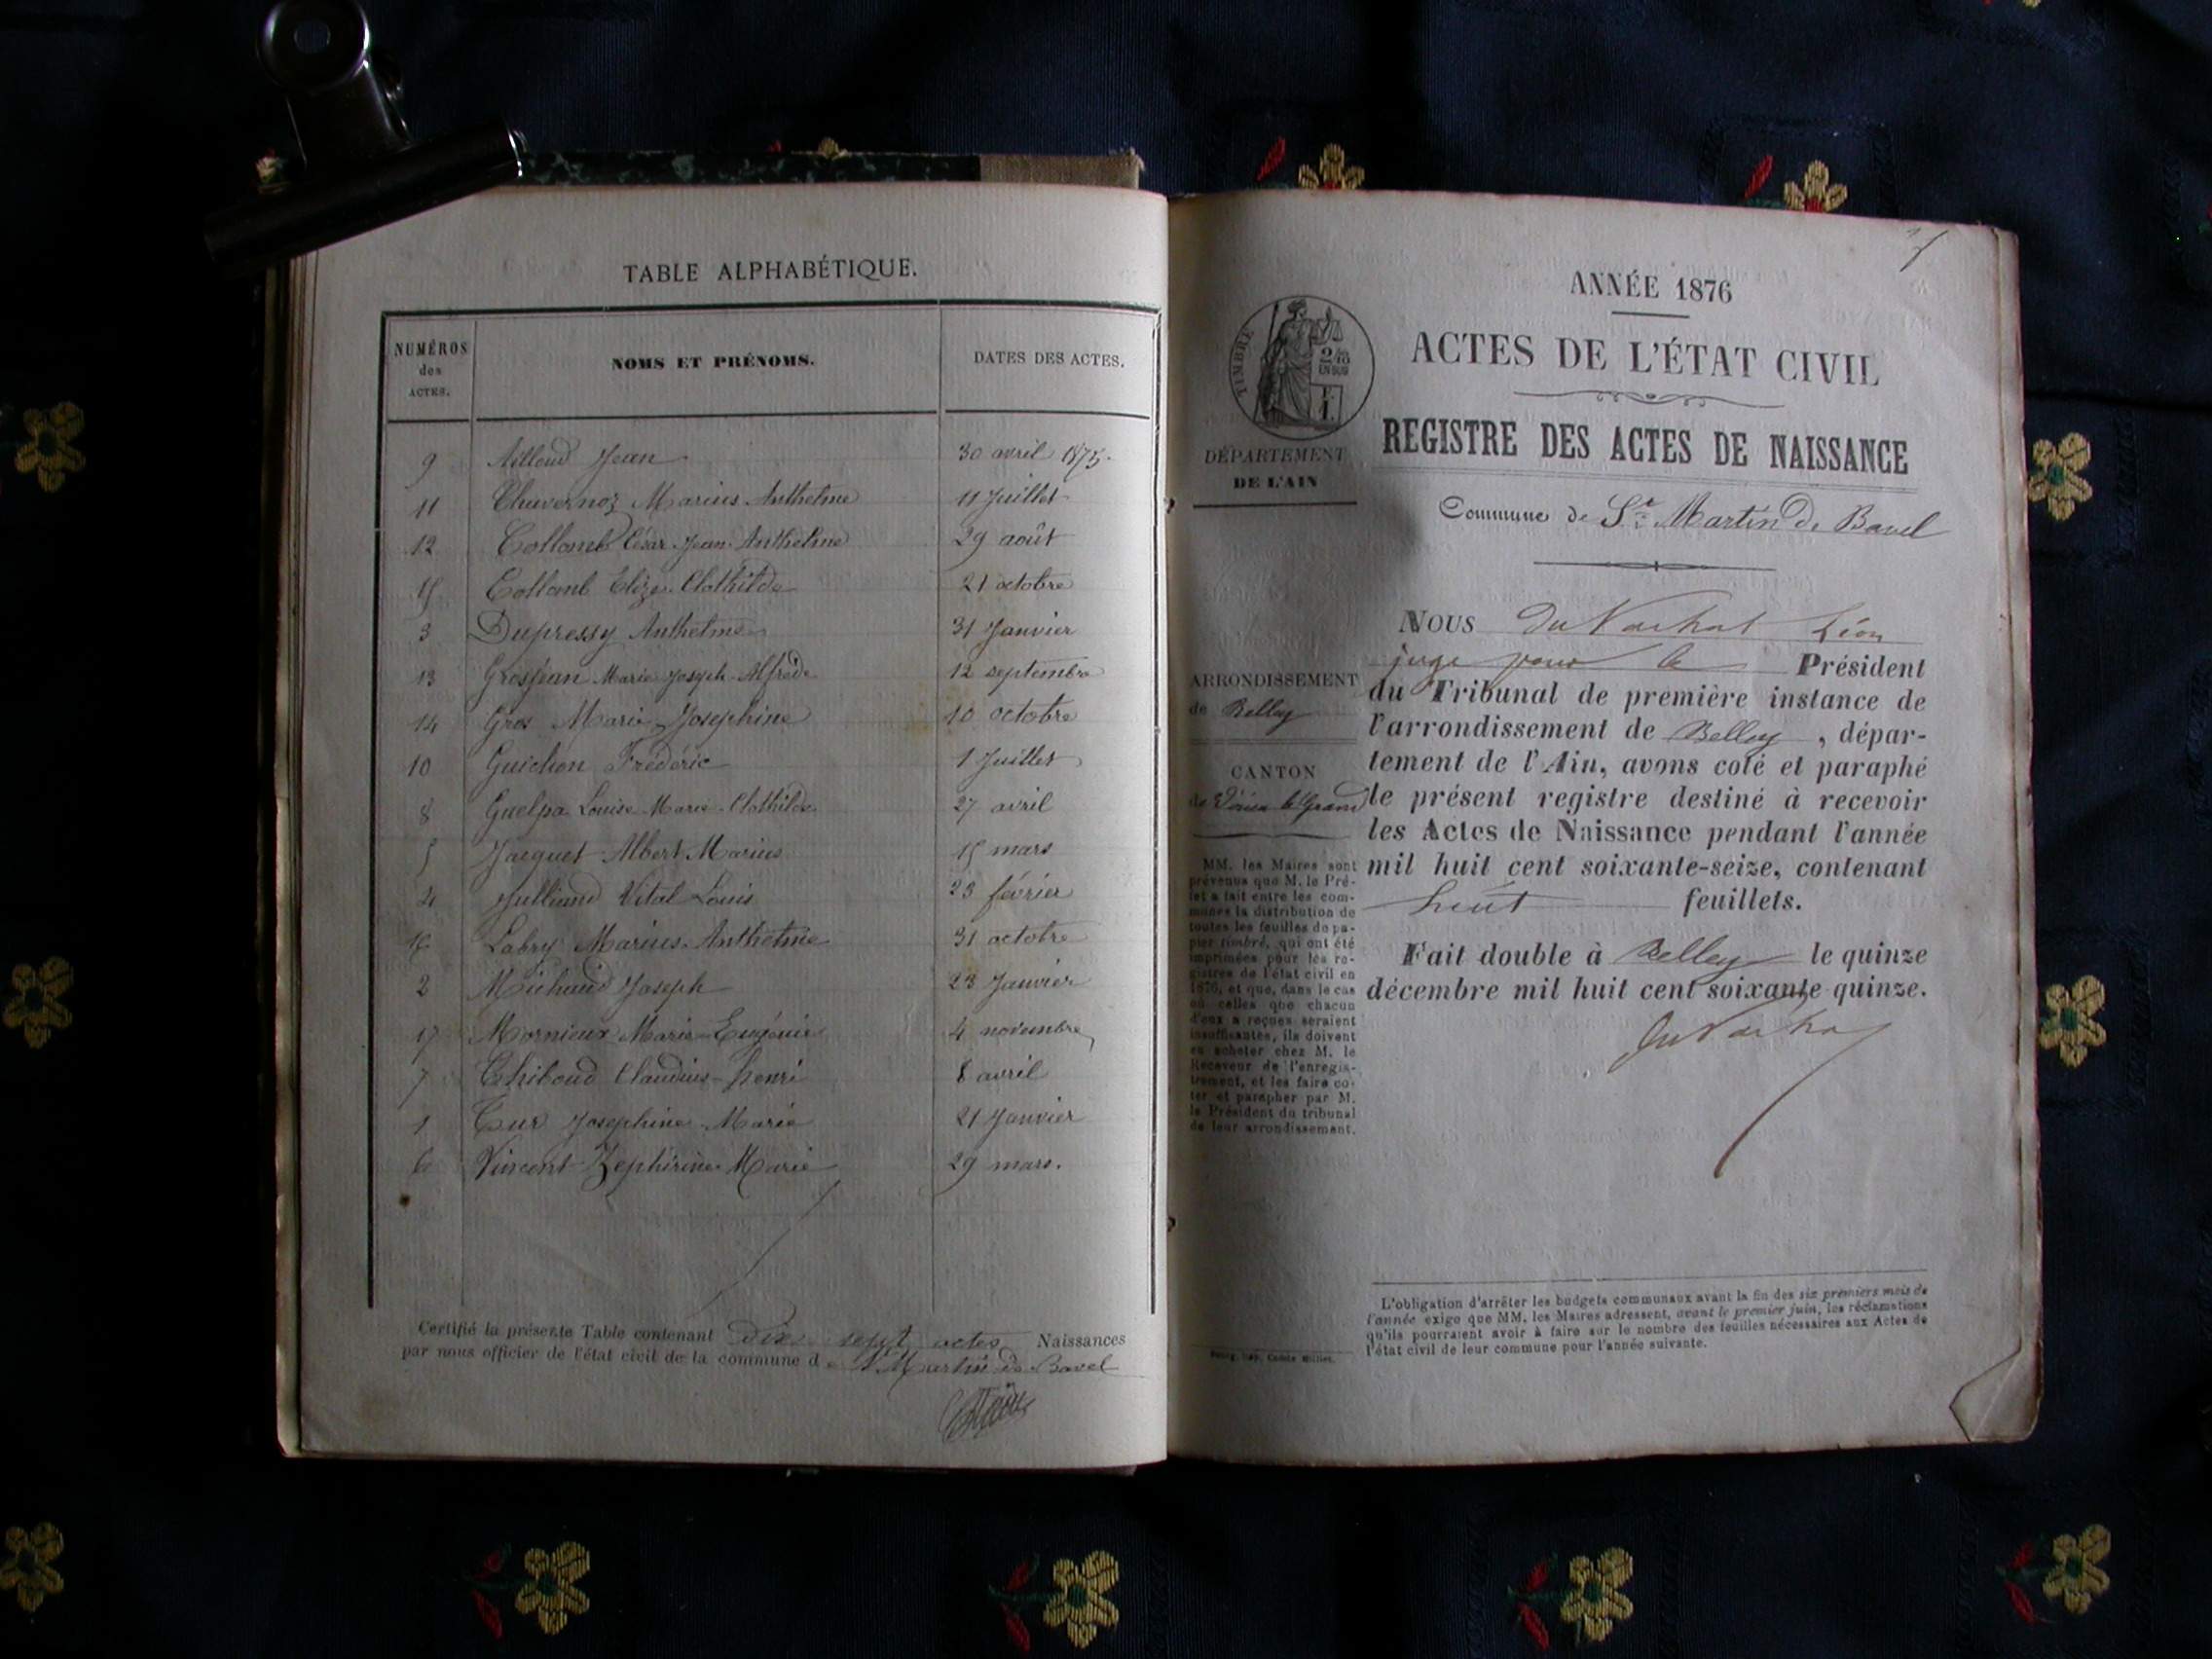 TABLE ALPHABÉTIQUE.
NUMÉROS des ACTES. NOMS ET PRÉNOMS. DATES DES ACTES.
9 Ailloud Jean 30 avril 1875.
11 Chavernoz Marius Anthelme 11 Juillet
12 Collomb César Jean Anthelme 29 août
15 Collomb Clothilde 21 octobre
3 Dupressy Anthelme 31 Janvier
13 Grosjean Marie Joseph Alfred 12 septembre
14 Gros Marie Josephine 10 octobre
10 Guichon Frédéric 1 Juillet
8 Guelpa Louise Marie Clothilde 27 avril
5 Jacquet Albert Marius 15 mars
4 Julliand Vital Louis 23 février
16 Labry Marius Anthelme 31 octobre
2 Michaud Joseph 23 Janvier
17 Mornieux Marie Eugénie 4 novembre
7 Thiboud Claudius henri 8 avril
1 Tur Josephine Marie 21 Janvier
6 Vincent Zephirine Marie 29 mars.
Certifié la présente Table contenant Dix sept actes Naissances
par nous officier de l'état civil de la commune de St Martin de Bavel
7
ANNÉE 1876
ACTES DE L'ÉTAT CIVIL
REGISTRE DES ACTES DE NAISSANCE
Commune de St Martin de Bavel
TIMBRE
EN SUS
DÉPARTEMENT
DE L'AIN
ARRONDISSEMENT
de Belley
CANTON
de Virieu le Grand
MM. les Maires sont
prévenus que M. le Pré-
fet a fait entre les com-
munes la distribution de
toutes les feuilles de pa-
pier timbré, qui ont été
imprimées pour les re-
gistres de l'état civil en
1876, et que, dans le cas
où celles que chacun
d'eux a reçues seraient
insuffisantes, ils doivent
en acheter chez M. le
Receveur de l'enregis-
trement, et les faire co-
ter et parapher par M.
le Président du tribunal
de leur arrondissement.
NOUS Du Vachat Léon
juge pour le Président
du Tribunal de première instance de
l'arrondissement de Belley, dépar-
tement de l'Ain, avons coté et paraphé
le présent registre destiné à recevoir
les Actes de Naissance pendant l'année
mil huit cent soixante-seize, contenant
huit feuillets.
Fait double à Belley le quinze
décembre mil huit cent soixante quinze.
Du Vachat
L'obligation d'arrêter les budgets communaux avant la fin des six premiers mois de
l'année exige que MM. les Maires adressent, avant le premier juin, les réclamations
qu'ils pourraient avoir à faire sur le nombre des feuilles nécessaires aux Actes de
l'état civil de leur commune pour l'année suivante.